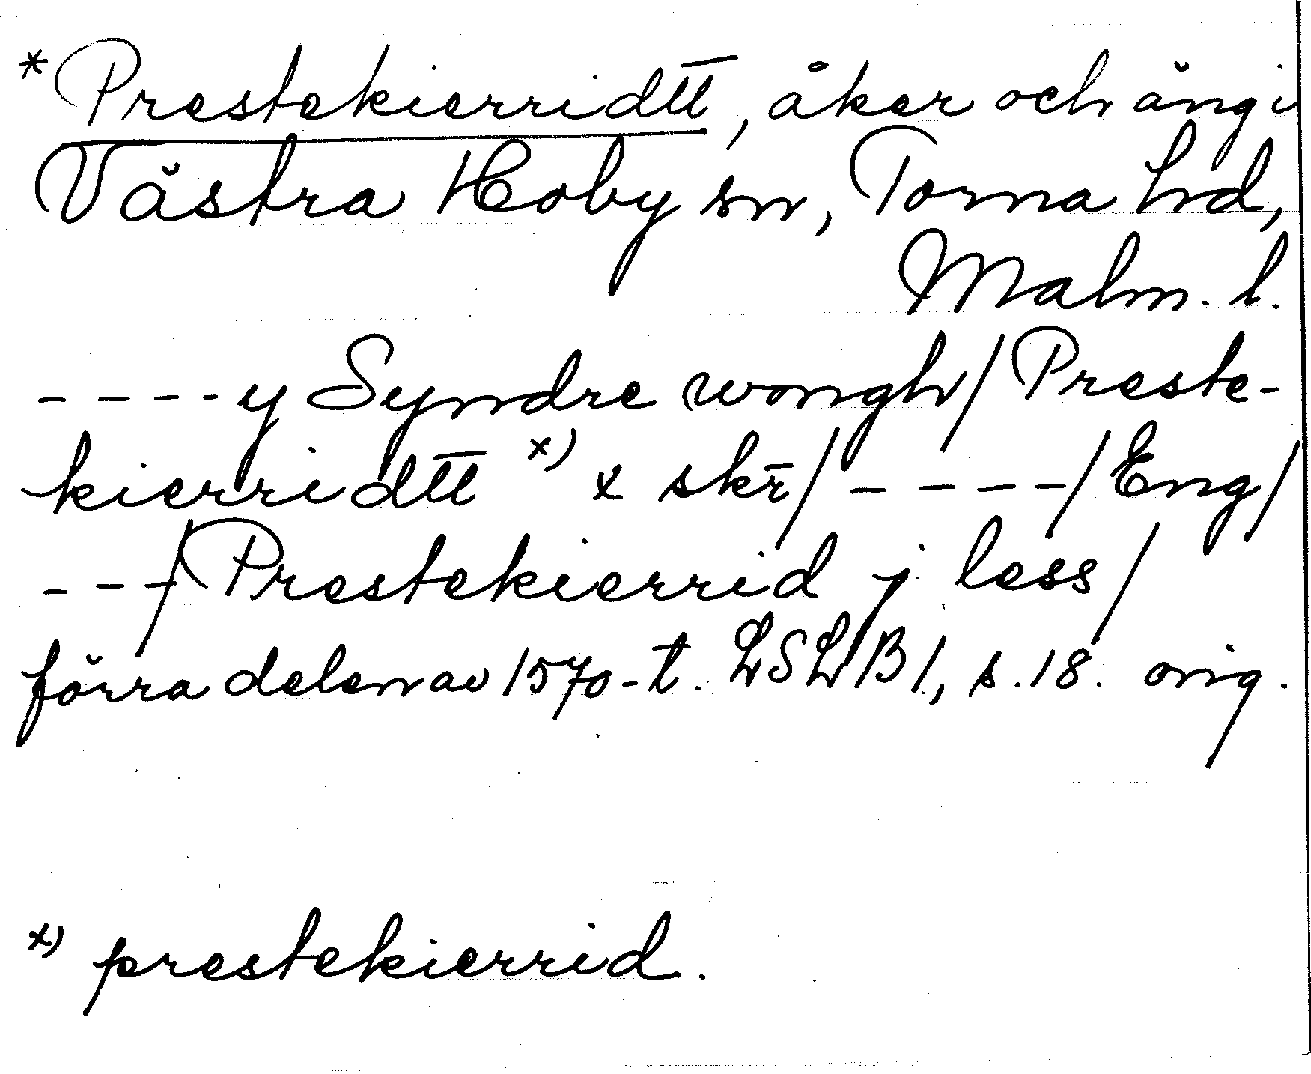 *Prestekierridtt, åker och äng i
Västra Hoby sn, Torna hd,
Malm. l.
- - - - y Syndre wongh / Preste-
kierridtt x) x skr̄ / - - - - / Eng /
- - - / Prestekierrid j less /
förra delen av 1570-t. LSLB 1, s. 18. orig.
x) prestekierrid.